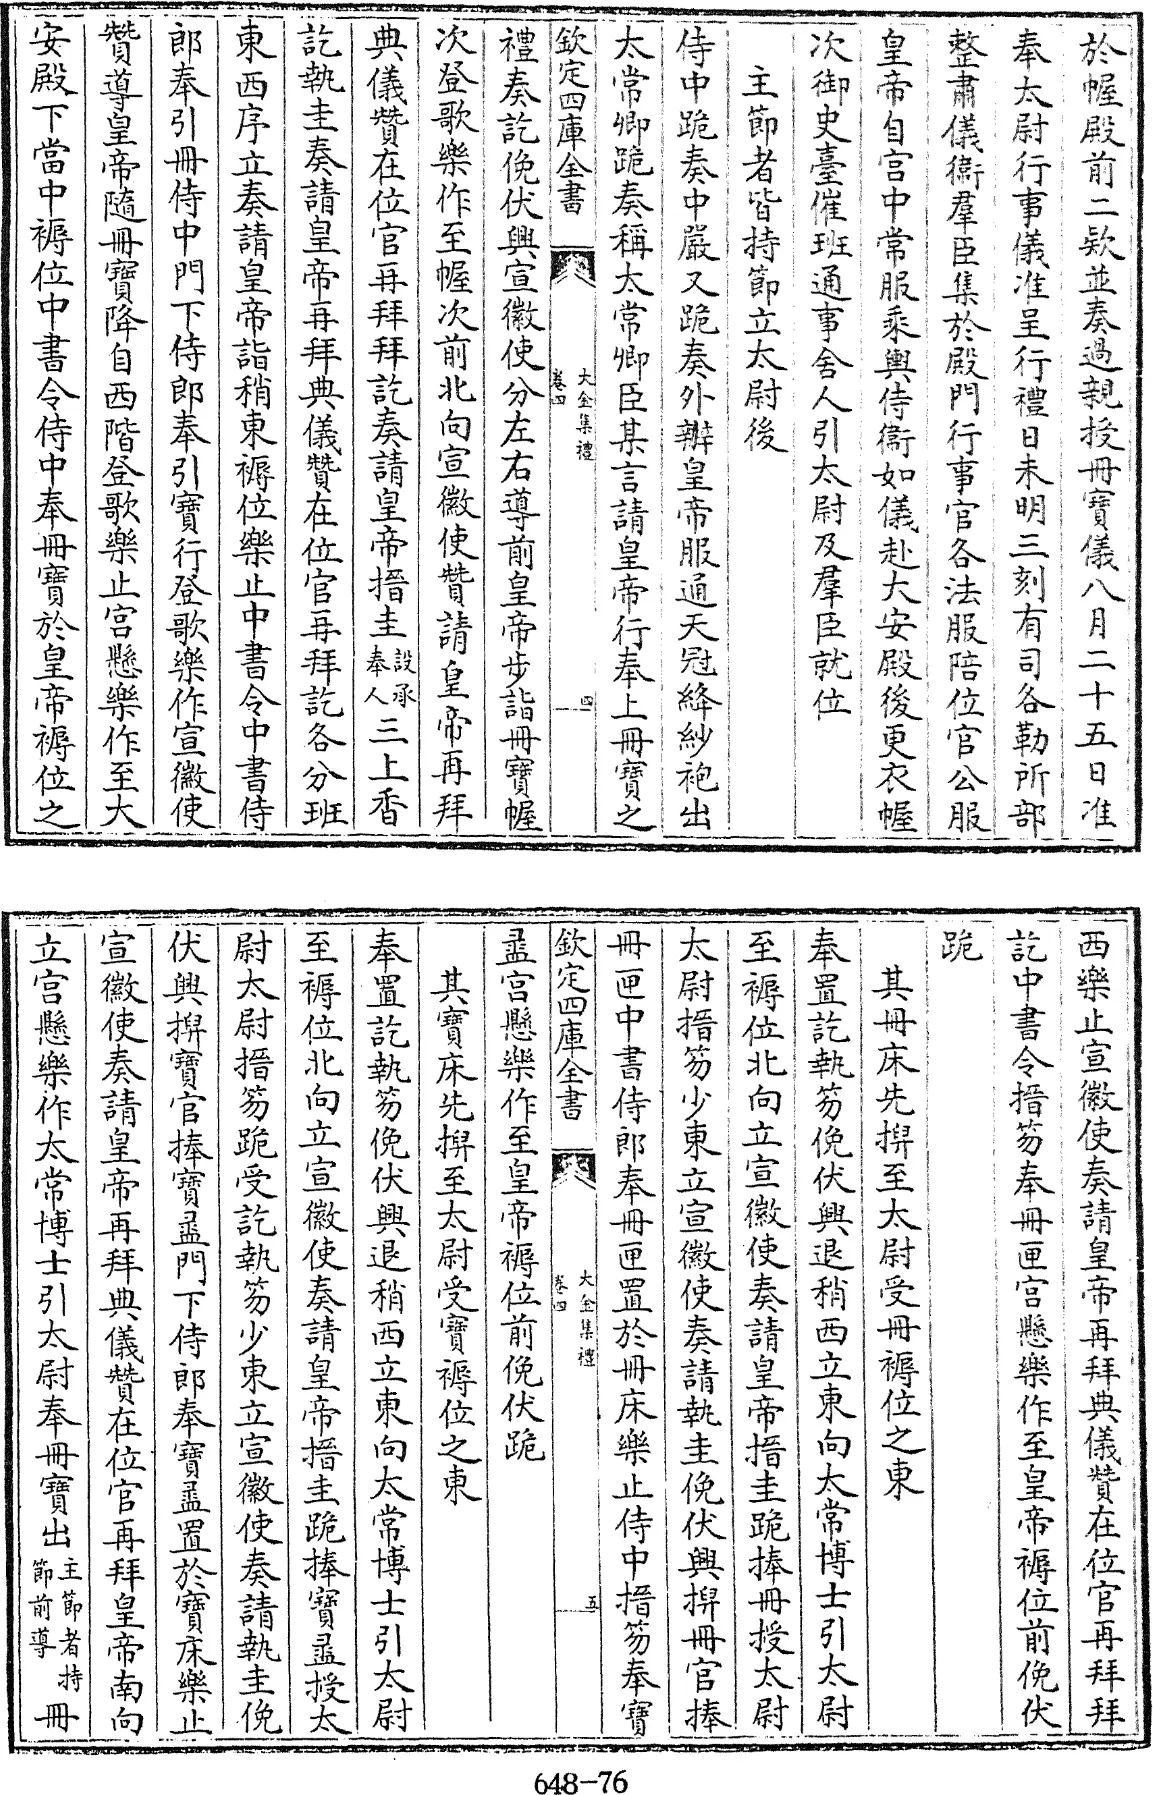 於幄殿前二欵並奏過親授冊寶儀八月二十五日准
奉太尉行事儀准呈行禮日未明三刻有司各勒所部
整肅儀衞羣臣集於殿門行事官各法服陪位官公服
皇帝自宮中常服乘輿侍衞如儀赴大安殿後更衣幄
次御史臺催班通事舍人引太尉及羣臣就位
主節者皆持節立太尉後
侍中跪奏中嚴又跪奏外辦皇帝服通天冠絳紗袍出
太常卿跪奏稱太常卿臣某言請皇帝行奉上冊寶之
欽定四庫全書
大金集禮
卷四
四
禮奏訖俛伏興宣徽使分左右導前皇帝步詣冊寶幄
次登歌樂作至幄次前北向宣徽使贊請皇帝再拜
典儀贊在位官再拜拜訖奏請皇帝搢圭設承奉人三上香
訖執圭奏請皇帝再拜典儀贊在位官再拜訖各分班
東西序立奏請皇帝詣稍東褥位樂止中書令中書侍
郎奉引冊侍中門下侍郎奉引寶行登歌樂作宣徽使
贊導皇帝隨冊寶降自西階登歌樂止宮懸樂作至大
安殿下當中褥位中書令侍中奉冊寶於皇帝褥位之
西樂止宣徽使奏請皇帝再拜典儀贊在位官再拜拜
訖中書令搢笏奉冊匣宮懸樂作至皇帝褥位前俛伏
跪
其冊床先捭至太尉受冊褥位之東
奉置訖執笏俛伏興退稍西立東向太常博士引太尉
至褥位北向立宣徽使奏請皇帝搢圭跪捧冊授太尉
太尉搢笏少東立宣徽使奏請執圭俛伏興捭冊官捧
冊匣中書侍郎奉冊匣置於冊床樂止侍中搢笏奉寶
欽定四庫全書
大金集禮
卷四
五
盝宮懸樂作至皇帝褥位前俛伏跪
其寶床先捭至太尉受寶褥位之東
奉置訖執笏俛伏興退稍西立東向太常博士引太尉
至褥位北向立宣徽使奏請皇帝搢圭跪捧寶盝授太
尉太尉搢笏跪受訖執笏少東立宣徽使奏請執圭俛
伏興捭寶官捧寶盝門下侍郎奉寶盝置於寶床樂止
宣徽使奏請皇帝再拜典儀贊在位官再拜皇帝南向
立宮懸樂作太常博士引太尉奉冊寶出主節者持節前導冊
648-76